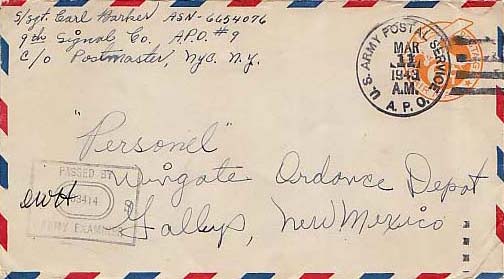 S/Sgt. Carl Barker ASN-6654076
9th Signal Co. A.P.O. #9
C/o Postmaster, Nyc. N.Y.
U.S. ARMY POSTAL SERVICE
MAR
11
1943
A.M.
A.P.O.
"Personel"
Wingate Ordance Depot
Gallup, New Mexico
PASSED BY
03414
ARMY EXAMINER